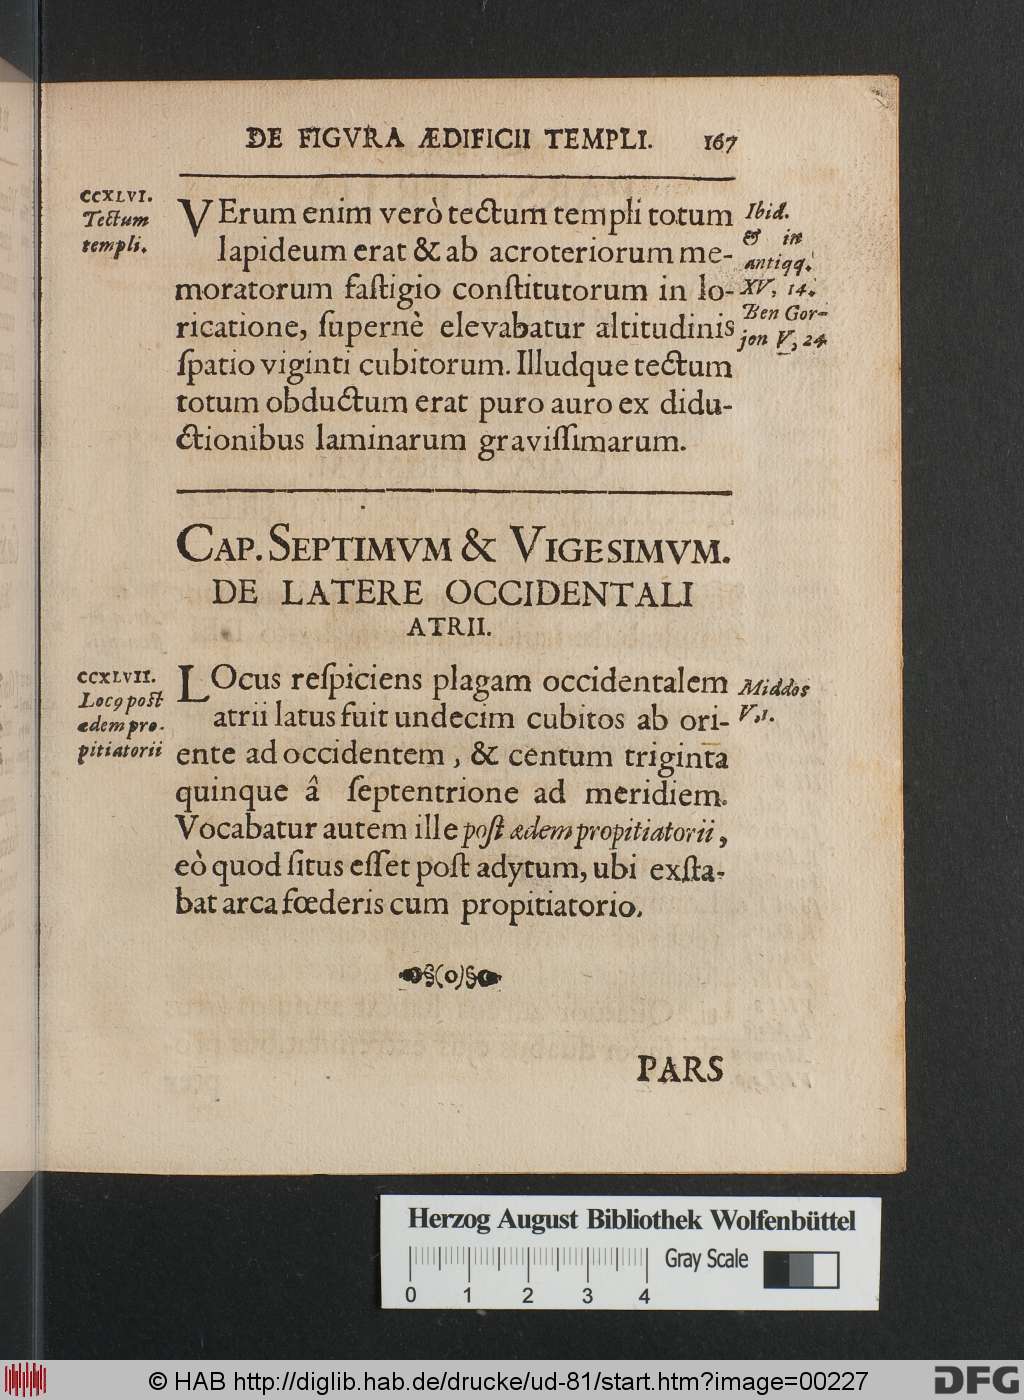 DE FIGVRA ÆDIFICII TEMPLI. 167
CCXLVI.
Tectum
templi.
VErum enim verò tectum templi totum
lapideum erat & ab acroteriorum me-
moratorum faſtigio conſtitutorum in lo-
ricatione, ſupernè elevabatur altitudinis
ſpatio viginti cubitorum. Illudque tectum
totum obductum erat puro auro ex didu-
ctionibus laminarum graviſſimarum.
Ibid.
& in
antiqq.
XV, 14.
Ben Gor-
jon V, 24.
CAP. SEPTIMVM & VIGESIMVM.
DE LATERE OCCIDENTALI
ATRII.
CCXLVII.
Locꝰ poſt
ædem pro-
pitiatorii
LOcus reſpiciens plagam occidentalem
atrii latus fuit undecim cubitos ab ori-
ente ad occidentem, & centum triginta
quinque â ſeptentrione ad meridiem.
Vocabatur autem ille poſt ædem propitiatorii,
eò quod ſitus eſſet poſt adytum, ubi exſta-
bat arca fœderis cum propitiatorio.
Middos
V,1.
PARS
Herzog August Bibliothek Wolfenbüttel
Gray Scale
0 1 2 3 4
© HAB http://diglib.hab.de/drucke/ud-81/start.htm?image=00227
DFG